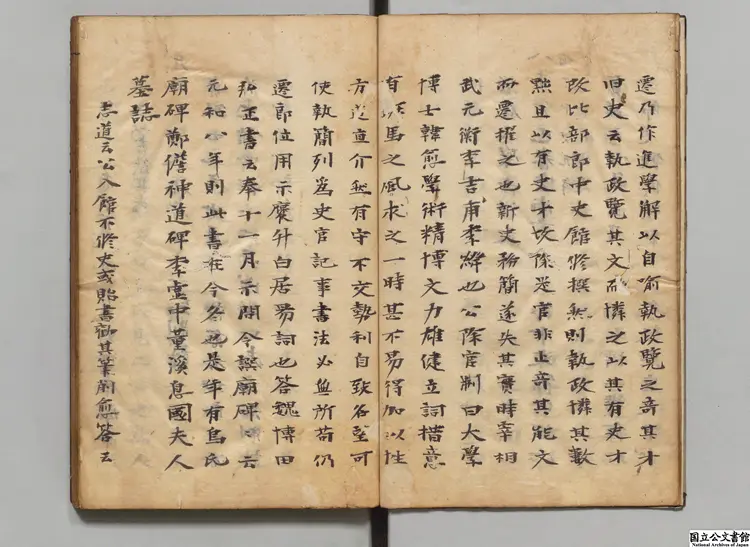 遷乃作進學解以自喻執政覽之奇其才
旧史云執政覽其文而憐之以其有史才
改比部郎中史館修撰然則執政憐其數
黜且以有史才故除是官非止奇其能文
而遷擢之也新史務簡遂失其實時宰相
武元衡李吉甫李絳也公除官制曰大學
博士韓愈學術精博文力雄健立詞措意
有班馬之風求之一時甚不易得加以性
方道直介然有守不交勢利自致名望可
使執簡列為史官記事書法必無所苟仍
遷郎位用示襃升白居易詞也答魏博田
弘正書云奉十一月示問令譔廟碑云云
元和八年則此書在今冬也是年有烏氏
廟碑鄭儋神道碑李虛中董溪息國夫人
墓誌
忠道云公入館不修史或貽書勸其筆削愈答云
国立公文書館
National Archives of Japan